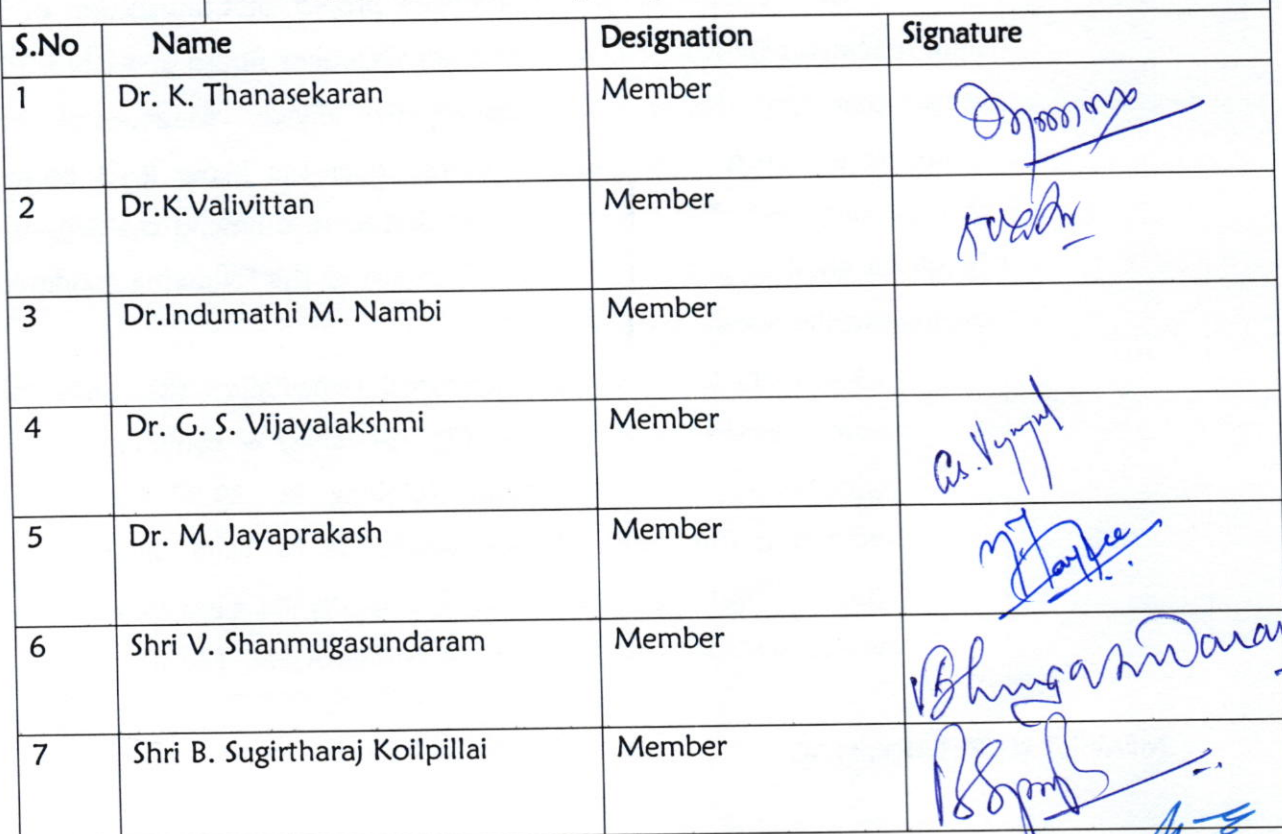 S.No Name Designation Signature
1 Dr. K. Thanasekaran Member
2 Dr.K.Valivittan Member
3 Dr.Indumathi M. Nambi Member
4 Dr. G. S. Vijayalakshmi Member
5 Dr. M. Jayaprakash Member
6 Shri V. Shanmugasundaram Member
7 Shri B. Sugirtharaj Koilpillai Member